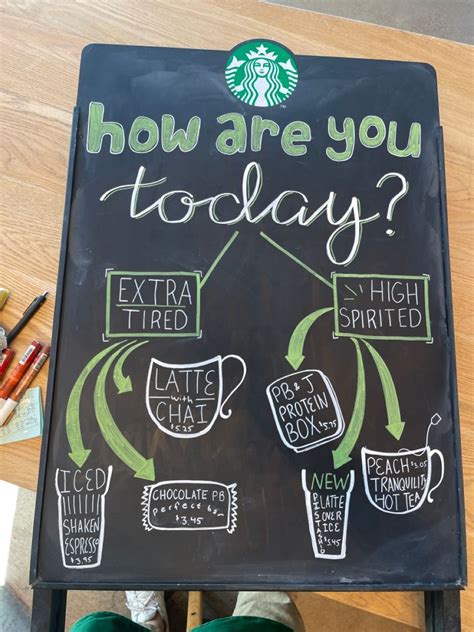 how are you
today?
EXTRA
TIRED
HIGH
SPIRITED
LATTE
with
CHAI
$5.25
PB & J
PROTEIN
BOX
$5.75
ICED
SHAKEN
ESPRESSO
$3.95
CHOCOLATE PB
perfect bar
$3.45
NEW
PISTACHIO
LATTE
OVER
ICE
$5.45
PEACH
TRANQUILITY
HOT TEA